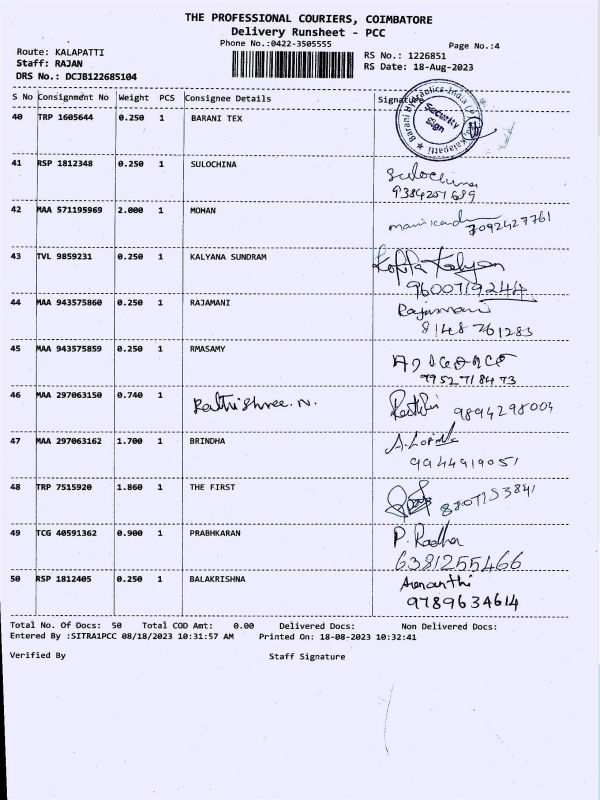 THE PROFESSIONAL COURIERS, COIMBATORE
Delivery Runsheet - PCC
Phone No.:0422-3505555
Page No.:4
Route: KALAPATTI
Staff: RAJAN
DRS No.: DCJB122685104
RS No.: 1226851
RS Date: 18-Aug-2023
S No Consignment No Weight PCS Consignee Details Signature
Barani Hydraulics India
Security Sign
Kalapatti
40 TRP 1605644 0.250 1 BARANI TEX
41 RSP 1812348 0.250 1 SULOCHINA Sulochina
42 MAA 571195969 2.000 1 MOHAN
7092427761
43 TVL 9859231 0.250 1 KALYANA SUNDRAM
9600719244
44 MAA 943575860 0.250 1 RAJAMANI Rajamani
8148761283
45 MAA 943575859 0.250 1 RMASAMY
9952718473
46 MAA 297063150 0.740 1 Rathishree.N. 9894298004
47 MAA 297063162 1.700 1 BRINDHA
9944919051
48 TRP 7515920 1.860 1 THE FIRST
49 TCG 40591362 0.900 1 PRABHKARAN P. Radha
6381255466
50 RSP 1812405 0.250 1 BALAKRISHNA
9789634614
Total No. Of Docs: 50 Total COD Amt: 0.00 Delivered Docs: Non Delivered Docs:
Entered By :SITRA1PCC 08/18/2023 10:31:57 AM Printed On: 18-08-2023 10:32:41
Verified By Staff Signature